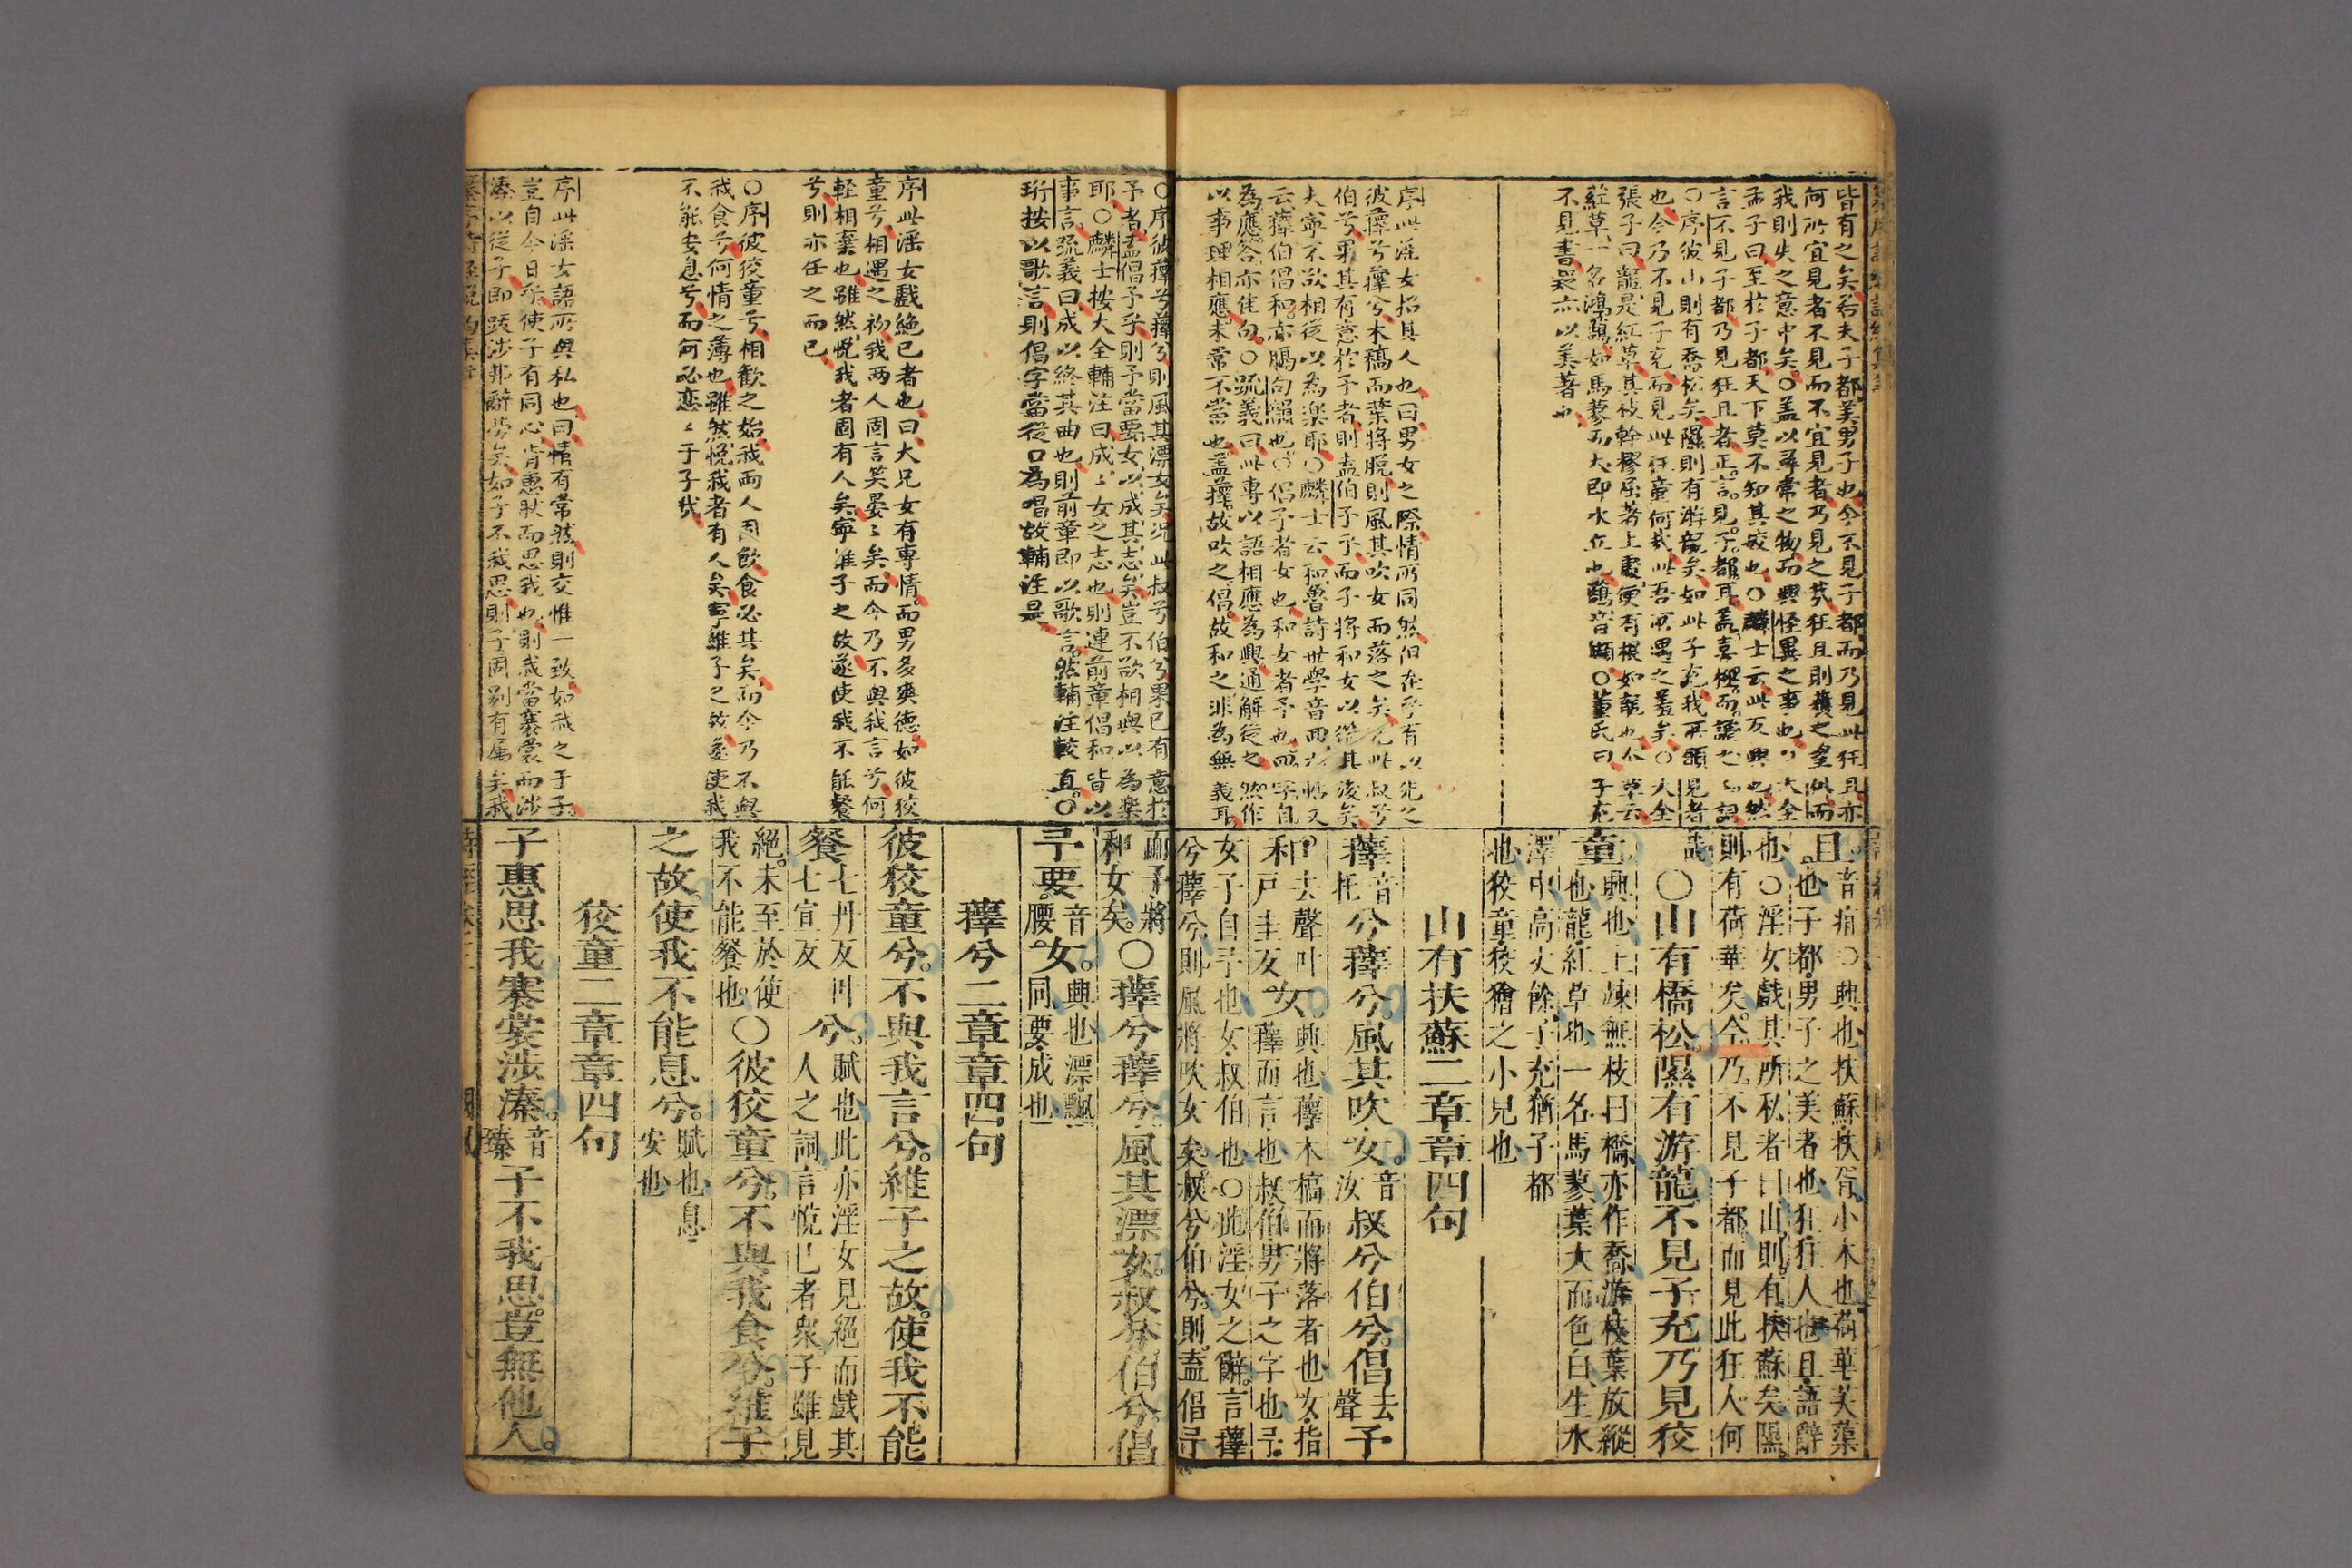 皆有之矣若夫子都美男子也今不見子都而乃見此狂且亦
何所宜見者不見而不宜見者乃見之哉狂且則獲之望外而
我則失之意中矣○蓋以尋常之物而興怪異之事也○大全
孟子曰至於子都天下莫不知其姣也○麟士云此反興也然
言不見子都乃見狂且者正言見子都耳蓋喜極而謔
○序彼山則有喬松矣隰則有游龍矣如此子充我所願見者
也今乃不見子充而見此狂童何哉此吾所遇之羞矣○大全
張子曰龍是紅草其枝幹樛屈著土處便有根如龍也本草云
紅草一名鴻䕬如馬蓼而大即水立也䕬音纈○董氏曰子充
不見書疑亦以美著也
序此淫女招其人也曰男女之際情所同然但在乎有以先之
彼蘀兮蘀兮木槁而葉將脫則風其吹女而落之矣况此叔兮
伯兮果其有意於予者則盍伯予乎而予將和女以從其後矣
夫寧不欲相從以為樂耶○麟士云和魯詩世學音又
云蘀伯倡和亦隔句韻也○倡予者女也和女者予也
為應答亦佳句○疏義曰此專以語相應為興通解從之然作
以事理相應未常不當也蓋蘀故吹之倡故和之非為無義耳
且音疽○興也扶蘇扶胥小木也荷華芙蕖
也子都男子之美者也狂狂人也且語辭
也○淫女戲其所私者曰山則有扶蘇矣隰
則有荷華矣今乃不見子都而見此狂人何
哉○山有橋松隰有游龍不見子充乃見狡
童興也上竦無枝曰橋亦作喬游枝葉放縱
也龍紅草也一名馬蓼葉大而色白生水
澤中高丈餘子充猶子都
也狡童狡獪之小兒也
山有扶蘇二章章四句
蘀音托兮蘀兮風其吹女音汝叔兮伯兮倡去聲予
和去聲叶戶圭反女興也蘀木槁而將落者也女指
蘀而言也叔伯男子之字也予
女子自予也女叔伯也○此淫女之辭言蘀
兮蘀兮則風將吹女矣叔兮伯兮則盍倡予
○序彼蘀兮蘀兮則風其漂女矣况此叔兮伯兮果已有意於
予者盍倡予乎則予當要女以成其志矣豈不欲相與以為樂
耶○麟士按大全輔注曰成成女之志也則連前章倡和皆以
事言疏義曰成以終其曲也則前章即以歌言然輔注較直○
珩按以歌言則倡字當從口為唱故輔注是
序此淫女戲絕已者也曰大凡女有專情而男多爽德如彼狡
童兮相遇之初我兩人固言笑晏晏矣而今乃不與我言兮何
輕相棄也雖然悅我者固有人矣寧維子之故遂使我不能餐
兮則亦任之而已
○序彼狡童兮相歡之始我兩人固飲食必共矣而今乃不與
我食兮何情之薄也雖然悅我者有人矣寧維子之故遂使我
不能安息兮而何必戀戀于子哉
序此淫女語所與私也曰情有常然則交惟一致如我之于子
豈自今日所使子有同心肯惠然而思我也則我當褰裳而涉
溱以從子即跋涉那辭勞矣如子不我思則子固别有属矣我
而予將和女矣○蘀兮蘀兮風其漂女叔兮伯兮倡
予要音腰女興也漂飄同要成也
蘀兮二章章四句
彼狡童兮不與我言兮維子之故使我不能
餐七丹反叶七宣反兮賦也此亦淫女見絕而戲其
人之詞言悅己者衆子雖見
絕未至於使我不能餐也○彼狡童兮不與我食兮維子
之故使我不能息兮賦也息安也
狡童二章章四句
子惠思我褰裳涉溱音臻子不我思豈無他人